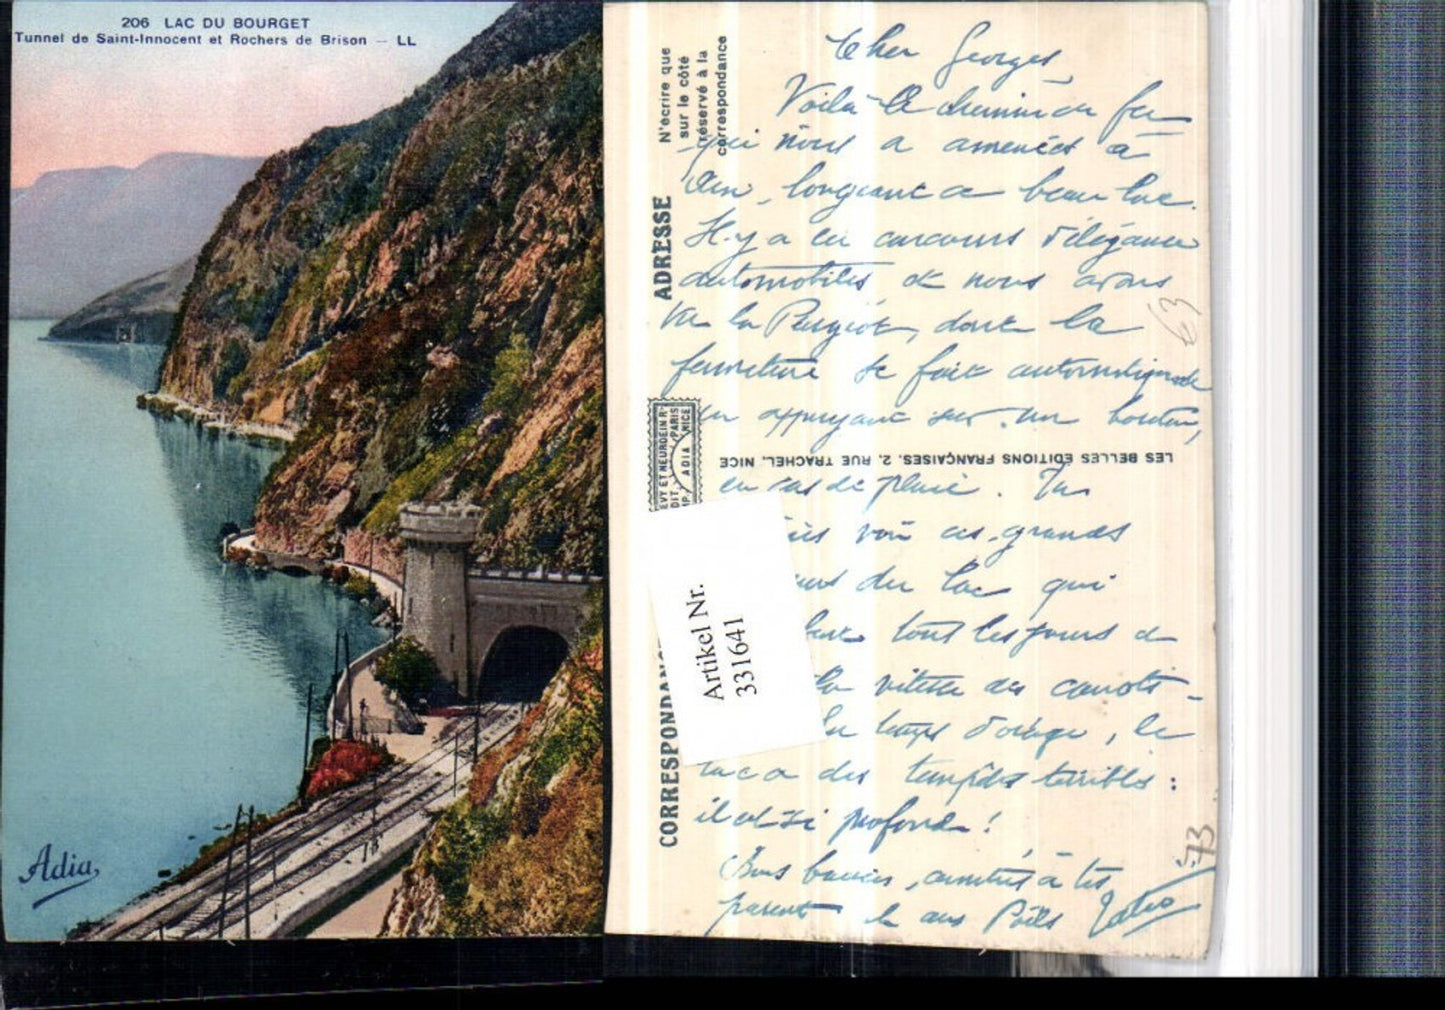 206 LAC DU BOURGET
Tunnel de Saint-Innocent et Rochers de Brison — LL
Adia
N'écrire que
sur le côté
réservé à la
correspondance
ADRESSE
CORRESPONDANC
LEVY ET NEURDEIN R
PARIS
ADIA NICE
LES BELLES EDITIONS FRANÇAISES. 2, RUE TRACHEL, NICE
Artikel Nr.
331641
Cher Georges,
Voilà le chemin de fer
qui nous a amenés à
Aix, longeant ce beau lac.
Il y a eu concours d'élégance
automobiles et nous avons
vu la Peugeot, dont la
fermeture se fait automatiquement
en appuyant sur un bouton,
en cas de pluie. Tu
voir ces grands
du lac qui
tous les jours
la vitesse des canots-
temps d'orage, le
lac a des tempêtes terribles :
il est si profond !
Bons baisers, amitiés à tes
parents
63
73